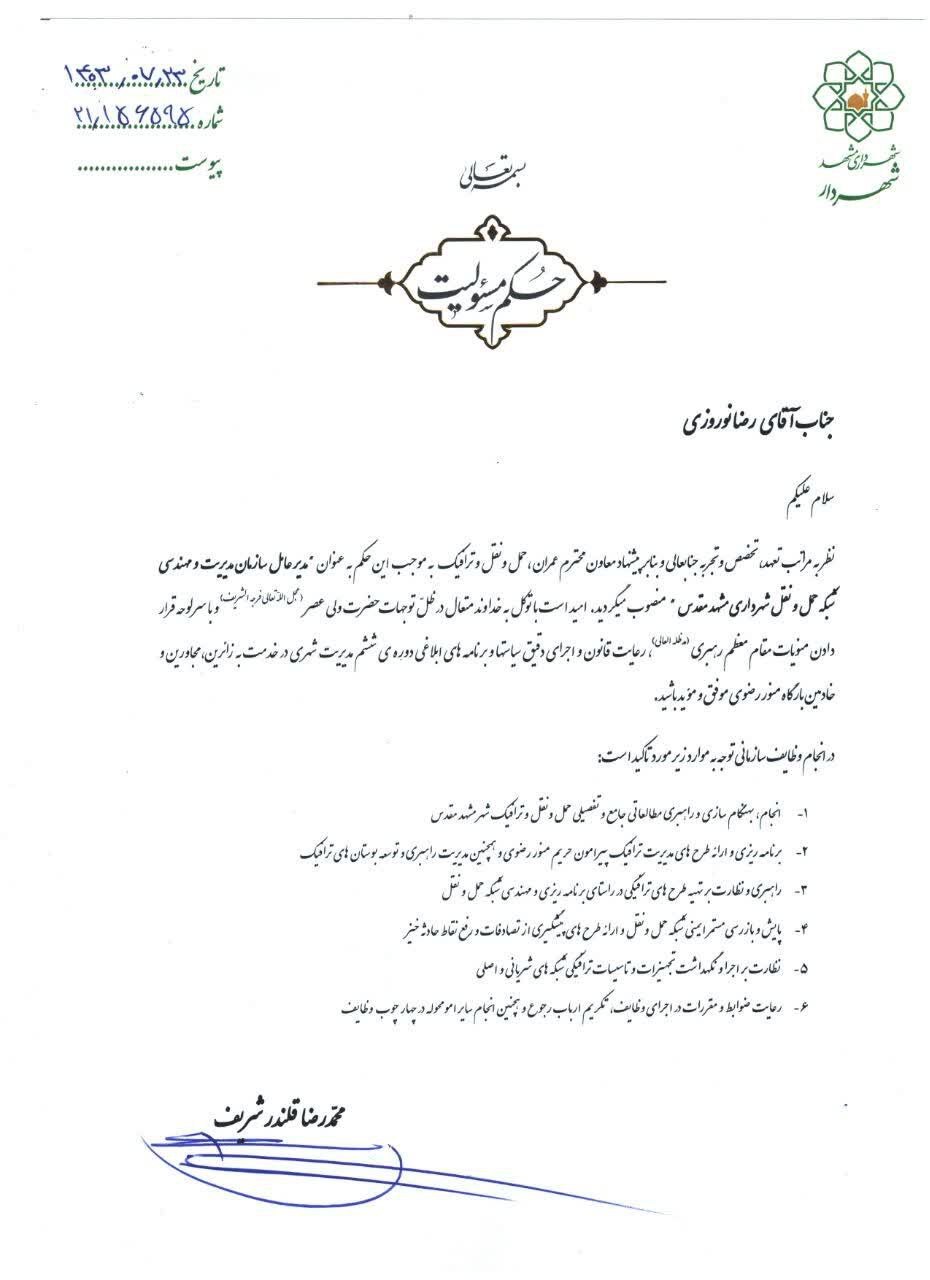 تاریخ ۱۴۰۳/۰۷/۲۳
شماره ۲۱/۱۵۶۵۹۵
پیوست................
شهرداری مشهد
شهردار
بسمه تعالی
حکم مسئولیت
جناب آقای رضا نوروزی
سلام علیکم
نظر به مراتب تعهد، تخصص و تجربه جنابعالی و بنابر پیشنهاد معاون محترم عمران، حمل و نقل و ترافیک به موجب این حکم به عنوان "مدیر عامل سازمان مدیریت و مهندسی
شبکه حمل و نقل شهرداری مشهد مقدس" منصوب میگردید. امید است با توکل به خداوند متعال در ظلّ توجهات حضرت ولی عصر (عجل الله تعالی فرجه الشریف) و با سرلوحه قرار
دادن منویات مقام معظم رهبری (مدظله العالی)، رعایت قانون و اجرای دقیق سیاستها و برنامه های ابلاغی دوره ی ششم مدیریت شهری در خدمت به زائرین، مجاورین و
خادمین بارگاه منور رضوی موفق و مؤید باشید.
در انجام وظایف سازمانی توجه به موارد زیر مورد تاکید است:
۱- انجام، بهنگام سازی و راهبری مطالعاتی جامع و تفصیلی حمل و نقل و ترافیک شهر مشهد مقدس
۲- برنامه ریزی و ارائه طرح های مدیریت ترافیک پیرامون حریم منور رضوی و همچنین مدیریت راهبری و توسعه بوستان های ترافیک
۳- راهبری و نظارت بر تهیه طرح های ترافیکی در راستای برنامه ریزی و مهندسی شبکه حمل و نقل
۴- پایش و بازرسی مستمر ایمنی شبکه حمل و نقل و ارائه طرح های پیشگیری از تصادفات و رفع نقاط حادثه خیز
۵- نظارت بر اجرا و نگهداشت تجهیزات و تاسیسات ترافیکی شبکه های شریانی و اصلی
۶- رعایت ضوابط و مقررات در اجرای وظایف، تکریم ارباب رجوع و همچنین انجام سایر امور محوله در چهار چوب وظایف
محمدرضا قلندر شریف